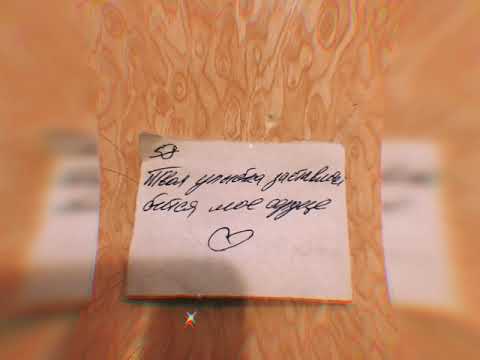 58
Твоя улыбка заставила
бится мое сердце